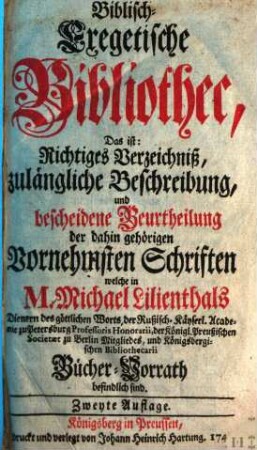 Biblisch-
Exegetische
Bibliothec,
Das ist:
Richtiges Verzeichniß,
zulängliche Beschreibung,
und
bescheidene Beurtheilung
der dahin gehörigen
Vornehmsten Schriften
welche in
M. Michael Lilienthals
Dieners des göttlichen Worts, der Rußisch-Käyserl. Acade-
mie zu Petersburg Professoris Honorarii, der Königl. Preußischen
Societæt zu Berlin Mitgliedes, und Königsbergi-
schen Bibliothecarii
Bücher-Vorrath
befindlich sind.
Zweyte Auflage.
Königsberg in Preussen,
druckt und verlegt von Johann Heinrich Hartung. 174